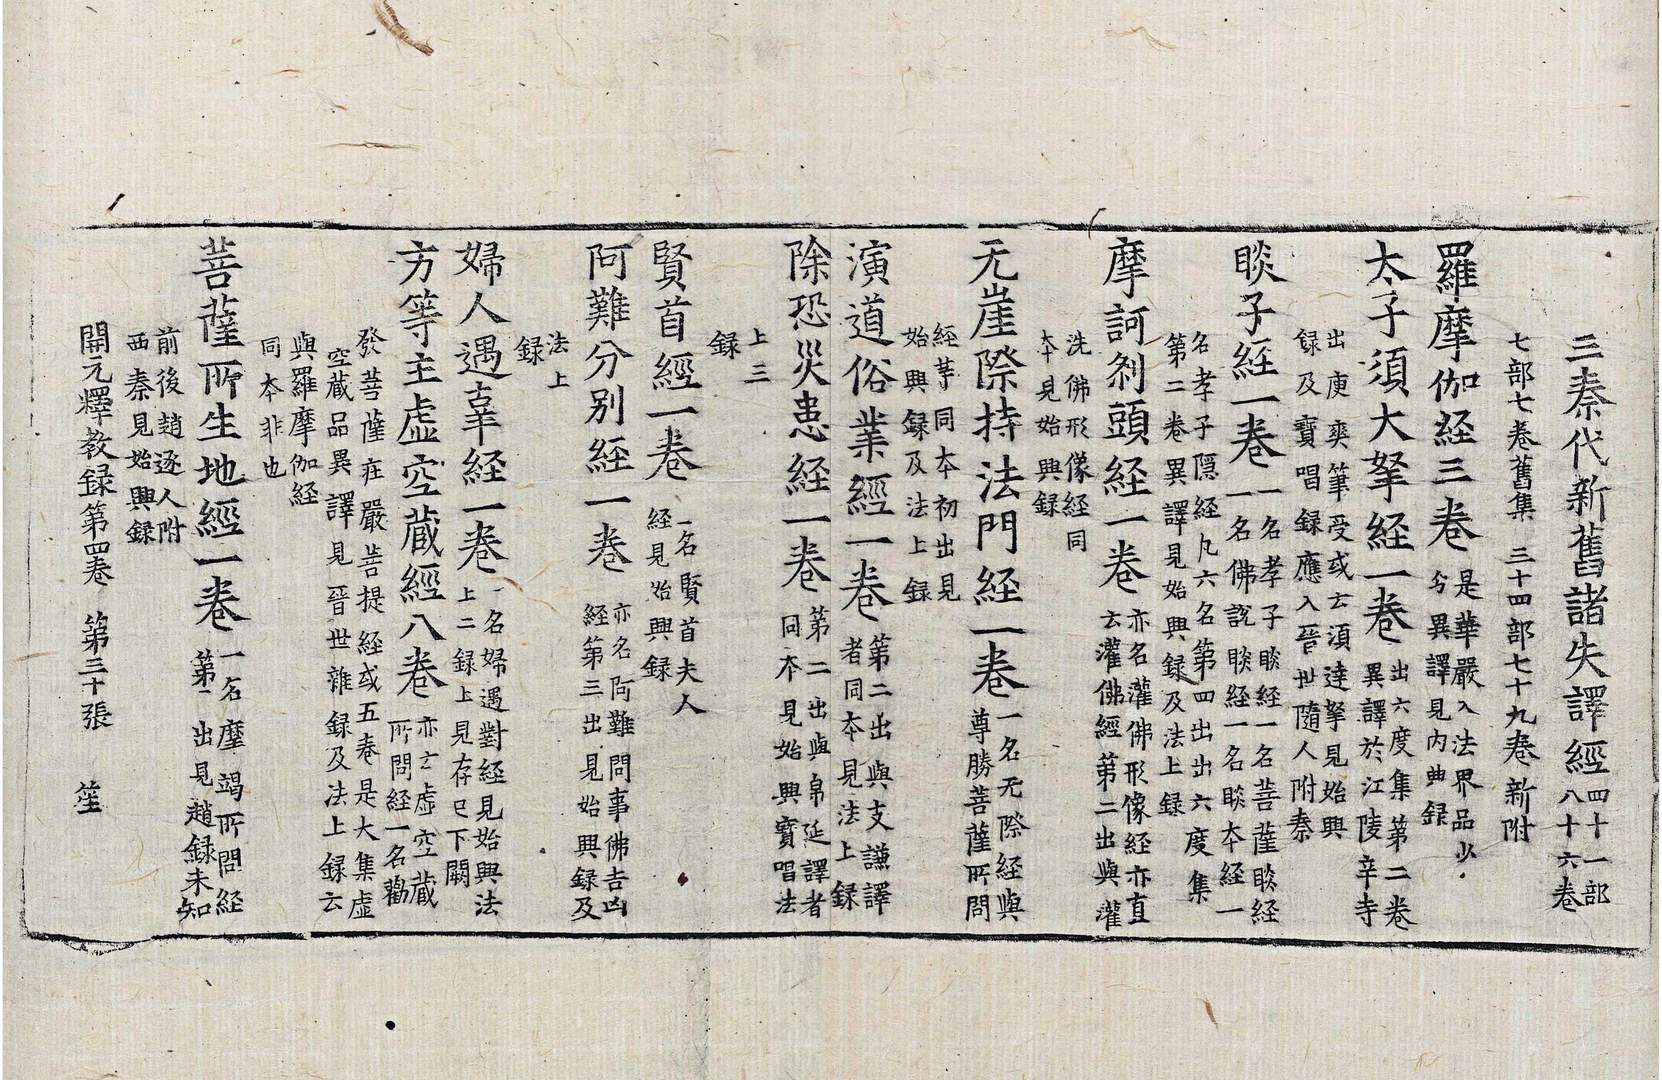 三秦代新舊諸失譯經四十一部
八十六卷
七部七卷舊集　三十四部七十九卷新附
羅摩伽経三卷是華嚴入法界品少
分異譯見内典録
太子須大拏経一卷出六度集第二卷
異譯於江陵辛寺
出庾爽筆受或云須達拏見始興
録及寶唱録應入晉世隨人附秦
睒子経一卷一名孝子睒経一名菩薩睒経
一名佛說睒経一名睒本経一
名孝子隱経凡六名第四出出六度集
第二卷異譯見始興録及法上録
摩訶刹頭経一卷亦名灌佛形像経亦直
云灌佛経第二出與灌
洗佛形像経同
本見始興録
无崖際持法門経一卷一名无際経與
尊勝菩薩所問
経等同本初出見
始興録及法上録
演道俗業經一卷第二出與支謙譯
者同本見法上録
除恐災患経一卷第二出與帛延譯者
同本見始興寶唱法
上三
録
賢首經一卷一名賢首夫人
経見始興録
阿難分別経一卷亦名阿難問事佛吉凶
経第三出見始興録及
法上
録
婦人遇辜経一卷一名婦遇對経見始興法
上二録上見存已下闕
方等主虚空蔵經八卷亦云虚空蔵
所問経一名勸
發菩薩莊嚴菩提経或五卷是大集虚
空蔵品異譯見晉世雜録及法上録云
與羅摩伽経
同本非也
菩薩所生地經一卷一名摩竭所問経
第一出見趙録未知
前後趙逐人附
西秦見始興録
開元釋教録第四卷　第三十張　笙